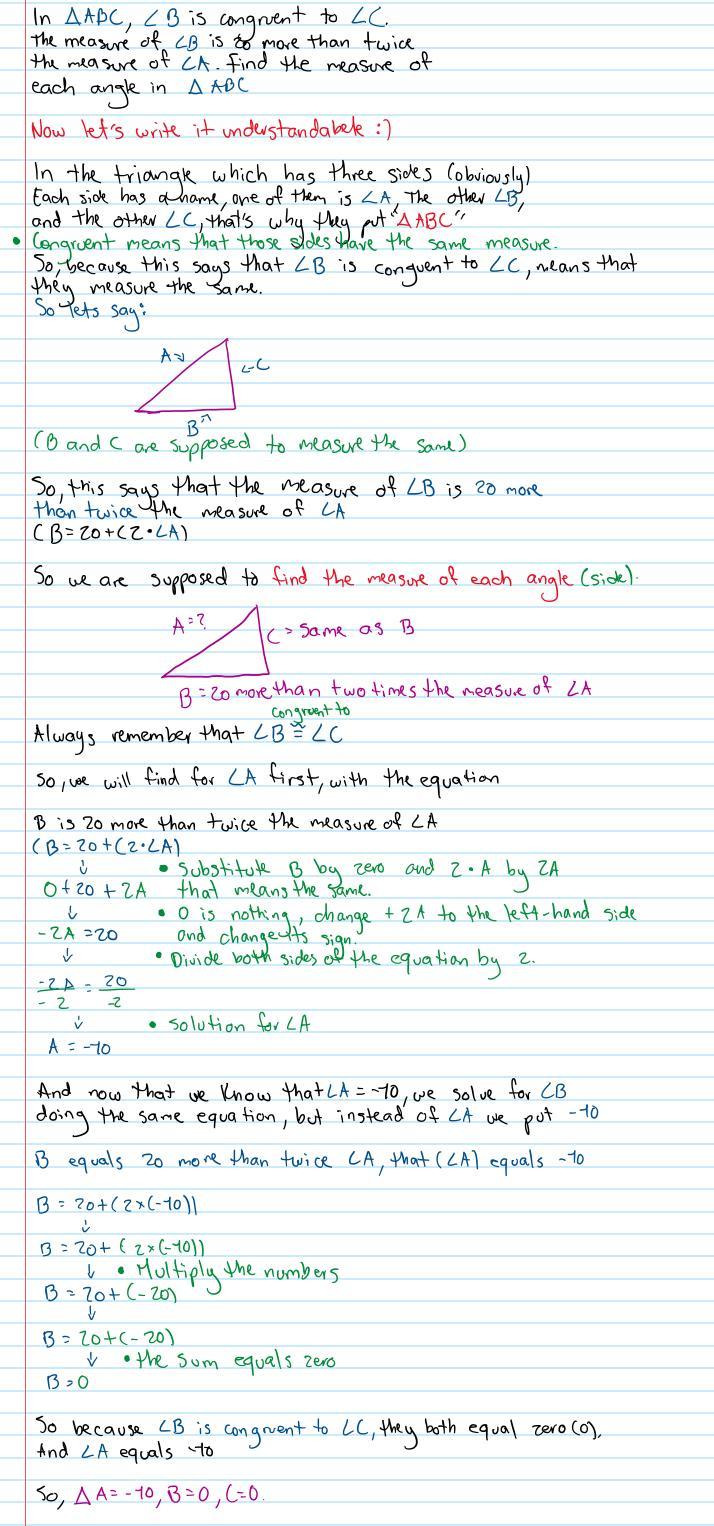 In ΔABC, ∠B is congruent to ∠C.
The measure of ∠B is 20 more than twice
the measure of ∠A. Find the measure of
each angle in Δ ABC
Now let's write it understandabele :)
In the triangle which has three sides (obviously)
Each side has a name, one of them is ∠A, The other ∠B,
and the other ∠C, that's why they put "ΔABC"
• Congruent means that those sides have the same measure.
So, because this says that ∠B is conguent to ∠C, means that
they measure the same.
So lets say:
A
C
B
(B and C are supposed to measure the same)
So, this says that the measure of ∠B is 20 more
than twice the measure of ∠A
(B=20+(2·∠A)
So we are supposed to find the measure of each angle (side).
A=?
C > Same as B
B=20 more than two times the measure of ∠A
congruent to
Always remember that ∠B ≅ ∠C
So, we will find for ∠A first, with the equation
B is 20 more than twice the measure of ∠A
(B=20+(2·∠A)
• Substitute B by zero and 2·A by 2A
that means the same.
0+20 + 2A
• 0 is nothing, change +2A to the left-hand side
and change its sign.
-2A =20
• Divide both sides of the equation by 2.
-2A = 20
-2 -2
• Solution for ∠A
A = -10
And now that we know that ∠A = -10, we solve for ∠B
doing the same equation, but instead of ∠A we put -10
B equals 20 more than twice ∠A, that (∠A) equals -10
B = 20+(2×(-10))
B = 20+ (2×(-10))
• Multiply the numbers
B = 20+(-20)
B = 20+(-20)
• the sum equals zero
B=0
So because ∠B is congruent to ∠C, they both equal zero (0).
And ∠A equals -10
So, Δ A=-10, B=0, C=0.